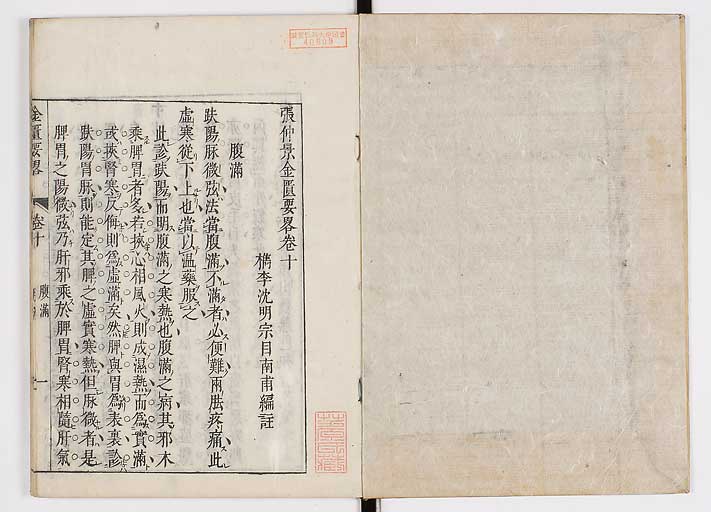 張仲景金匱要畧卷十
檇李沈明宗目南甫編註
腹滿
趺陽脉微弦法當腹滿不滿者必便難兩胠疼痛此
虛寒從下上也當以溫藥服之
此診趺陽而明腹滿之寒熱也腹滿之病其邪木
乘脾胃者多若挾心相風火則成濕熱而爲實滿
或挾腎寒反侮則爲虛滿矣然脾與胃爲表裏診
趺陽胃脉則能定其脾之虛實寒熱但脉微者是
脾胃之陽微弦乃肝邪乘於脾胃腎寒相隨肝氣
金匱要畧
卷十
腹滿
一
40809